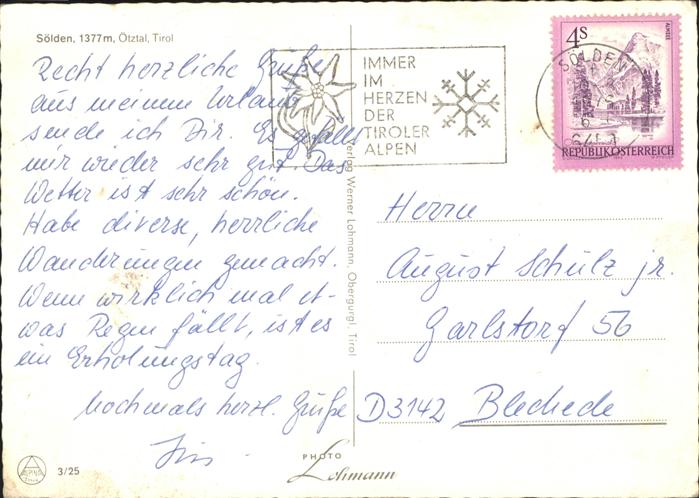 Sölden, 1377m, Ötztal, Tirol
Recht herzliche Grüße
aus meinem Urlaub
sende ich Dir. Es gefällt
mir wieder sehr gut. Das
Wetter ist sehr schön.
Habe diverse, herrliche
Wanderungen gemacht.
Wenn wirklich mal et-
was Regen fällt, ist es
ein Erholungstag.
Nochmals herzl. Grüße
3/25
Verlag Werner Lohmann, Obergurgl, Tirol
PHOTO
Lohmann
IMMER
IM
HERZEN
DER
TIROLER
ALPEN
SÖLDEN
4S
ALMSEE
REPUBLIK ÖSTERREICH
Herrn
August Schulz jr.
Garlstorf 56
D3142 Bleckede